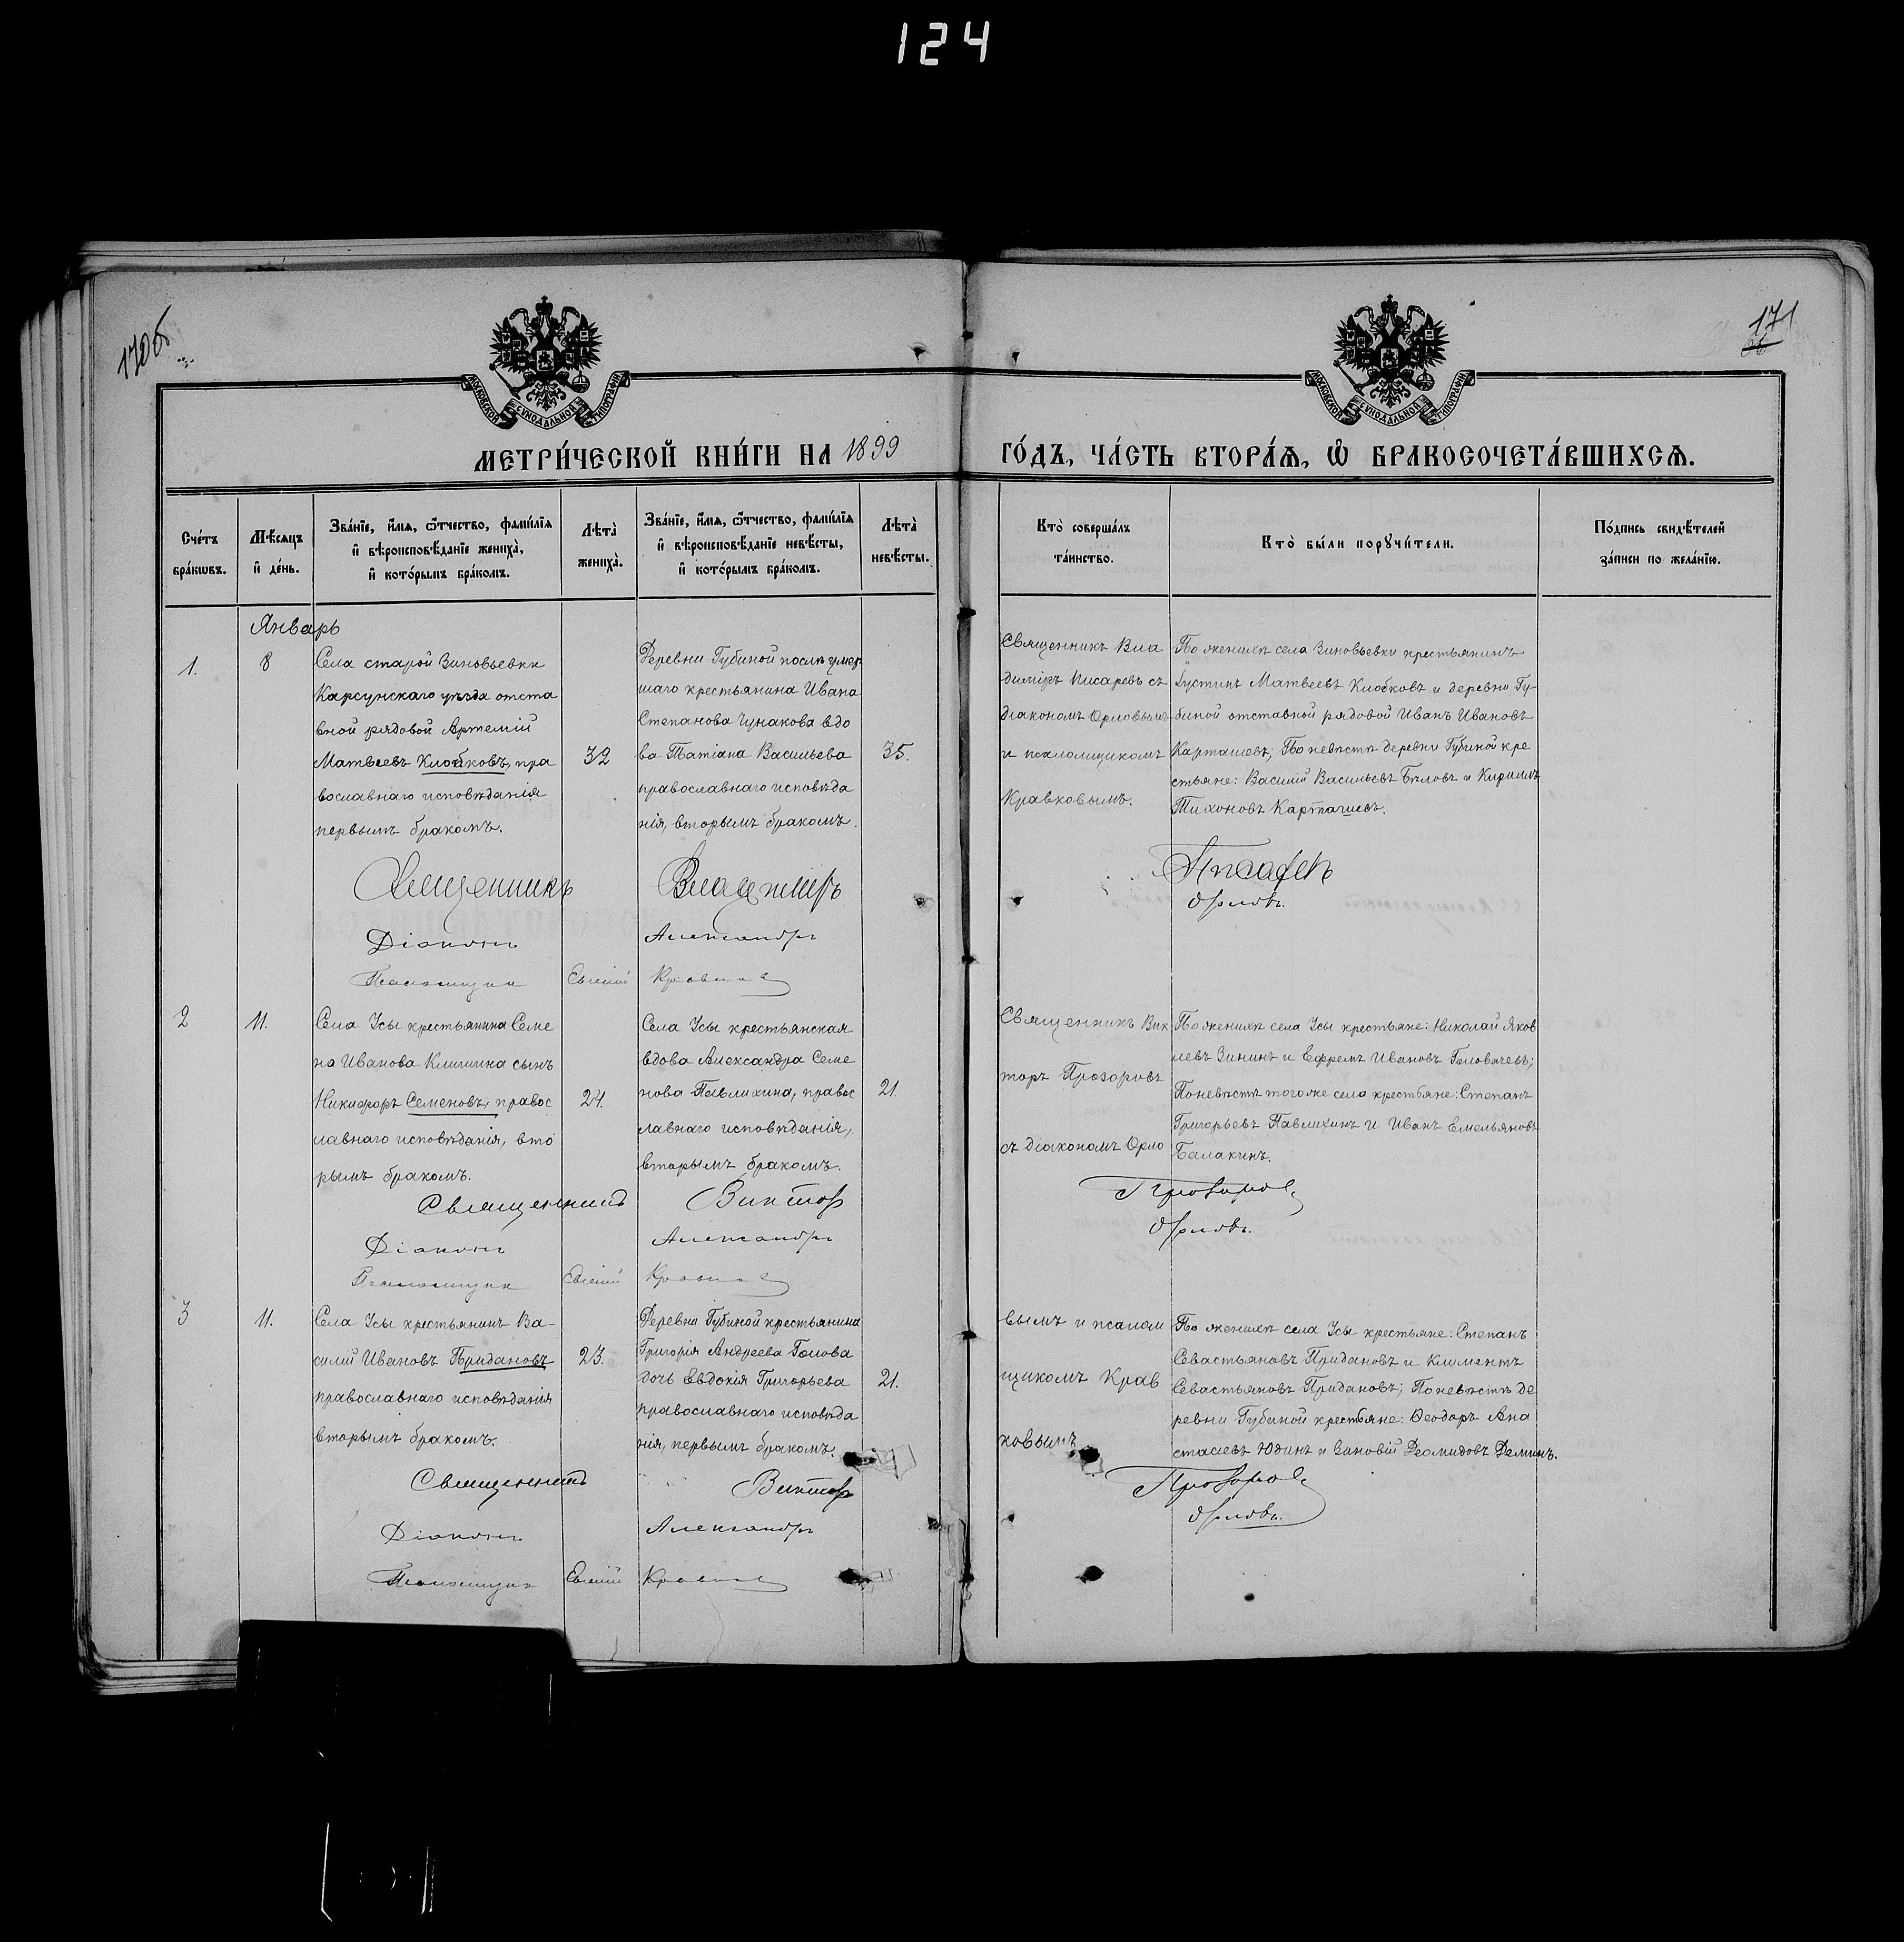 124
170об
171
66
МОСКОВСКОЙ СѴНОДАЛЬНОЙ ТИПОГРАФІИ
МОСКОВСКОЙ СѴНОДАЛЬНОЙ ТИПОГРАФІИ
МЕТРИ́ЧЕСКОЙ КНИ́ГИ НА 1899 ГО́ДЪ, ЧА́СТЬ ВТОРА́Я, Ѽ БРАКОСОЧЕТА́ВШИХСЯ.
Сче́тъ
бра́кѡвъ.
Мѣ́сяцъ
и҆ де́нь.
Зва́нїе, и҆́мя, ѻ҆́тчество, фами́лїя
и҆ вѣроисповѣ́данїе жениха̀,
и҆ кото́рымъ бра́комъ.
Лѣта̀
жениха̀.
Зва́нїе, и҆́мя, ѻ҆́тчество, фами́лїя
и҆ вѣроисповѣ́данїе невѣ́сты,
и҆ кото́рымъ бра́комъ.
Лѣта̀
невѣ́сты.
Кто̀ соверша́лъ
та́инство.
Кто̀ бы́ли порꙋчи́тели.
По́дпись свидѣ́телей
за́писи по жела́нїю.
Январь
1.
8
Села старой Зиновьевки
Карсунскаго уѣзда отста
вной рядовой Артемій
Матвеевъ Клюбковъ, пра
вославнаго исповѣданія
первымъ бракомъ.
32
Деревни Губиной послѣ умер
шаго крестьянина Ивана
Степанова Чунакова вдо
ва Татіана Васильева
православнаго исповѣда
нія, вторымъ бракомъ.
35.
Священникъ Вла
димиръ Писаревъ съ
діакономъ Орловымъ
и псаломщикомъ
Кравковымъ.
По женихѣ села Зиновьевки крестьянинъ
Іустинъ Матвеевъ Клюбковъ и деревни Гу-
биной отставной рядовой Иванъ Ивановъ
Карташевъ; По невѣстѣ деревни Губиной кре
стьяне: Василій Васильевъ Бѣловъ и Кириллъ
Тихоновъ Карташевъ.
Священникъ Владимиръ Писаревъ
Діаконъ Александръ Орловъ.
Псаломщикъ Евгеній Кравковъ
2
11.
Села Усы крестьянина Семе
на Иванова Климина сынъ
Никифоръ Семеновъ, правос
лавнаго исповѣданія, вто
рымъ бракомъ.
24.
Села Усы крестьянская
вдова Александра Семе
нова Павлихина, правос
лавнаго исповѣданія,
вторымъ бракомъ.
21
Священникъ Вик
торъ Прозоровъ
съ діакономъ Орло
По женихѣ села Усы крестьяне: Николай Яков
левъ Зининъ и Ефремъ Ивановъ Головачевъ;
По невѣстѣ тогоже села крестьяне: Степанъ
Григорьевъ Павлихинъ и Иванъ Емельяновъ
Балакинъ.
Священникъ Викторъ Прозоровъ
Діаконъ Александръ Орловъ.
Псаломщикъ Евгеній Кравковъ
3
11.
Села Усы крестьянинъ Ва-
силій Ивановъ Придановъ
православнаго исповѣданія
вторымъ бракомъ.
23.
Деревни Губиной крестьянина
Григорія Андреева Голова
дочь Евдокія Григорьева
православнаго исповѣда
нія, первымъ бракомъ.
21.
вымъ и псалом
щикомъ Крав
ковымъ
По женихѣ села Усы крестьяне: Степанъ
Севастьяновъ Придановъ и Климентъ
Севастьяновъ Придановъ; По невѣстѣ де
ревни Губиной крестьяне: Ѳеодоръ Ана
стасіевъ Юдинъ и Зиновій Деомидовъ Деминъ.
Священникъ Викторъ Прозоровъ
Діаконъ Александръ Орловъ.
Псаломщикъ Евгеній Кравковъ